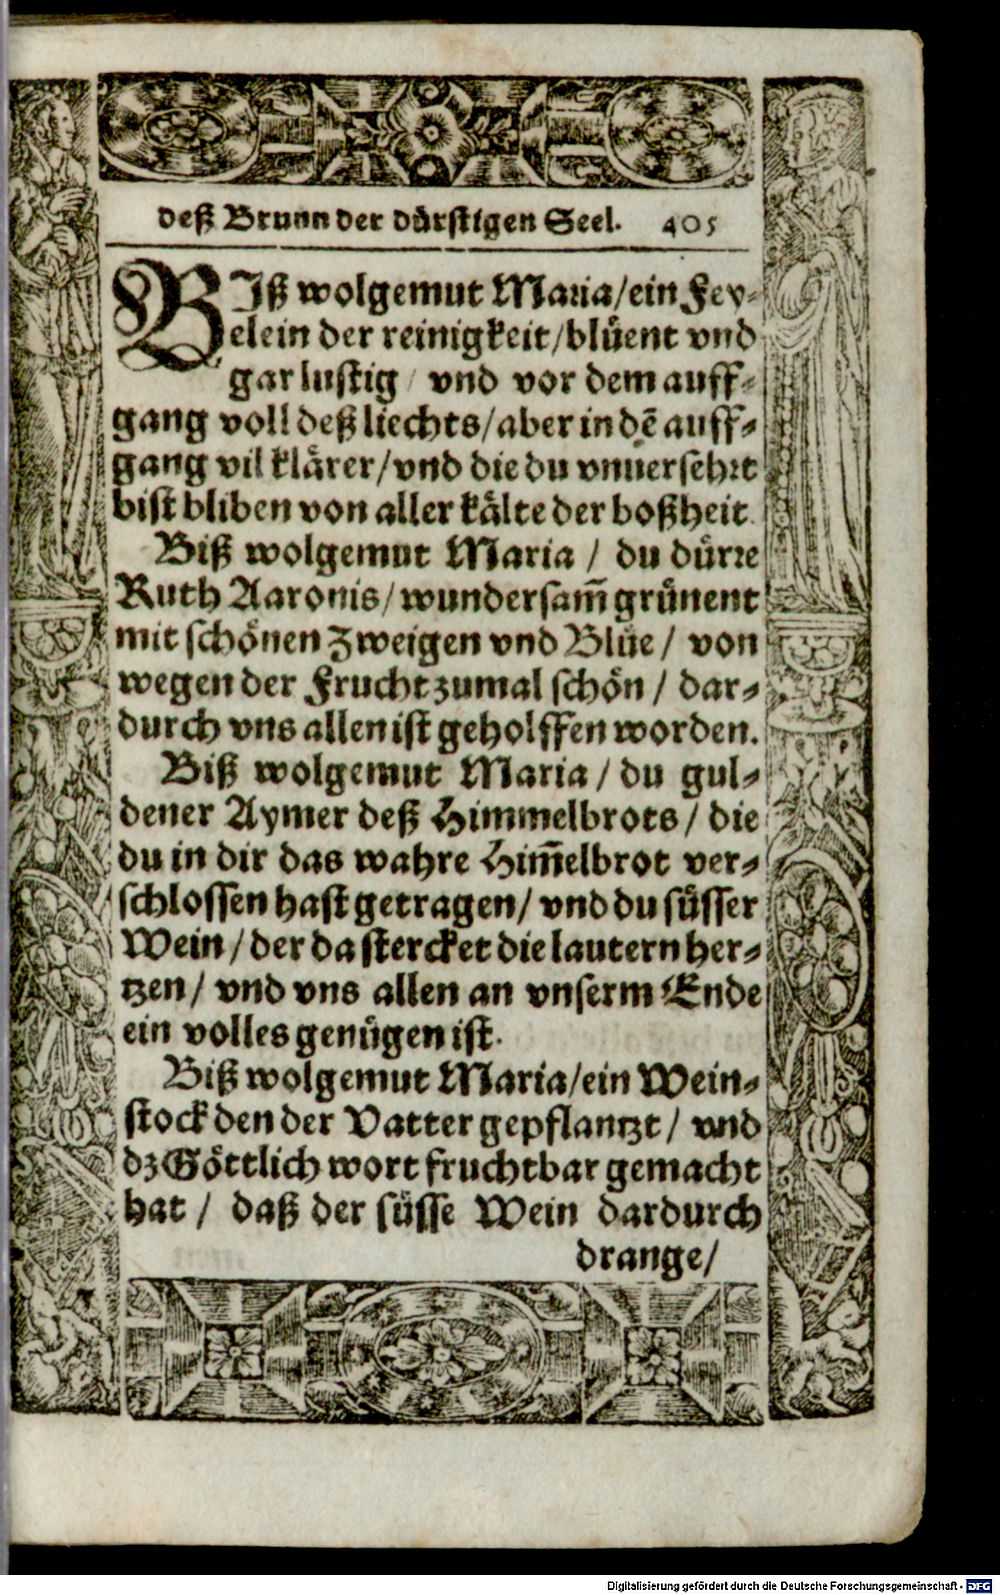 deß Brunn der dürstigen Seel. 405
BIß wolgemut Maria/ein Fey⸗
elein der reinigkeit/blüent vnd
gar lustig / vnd vor dem auff⸗
gang voll deß liechts/aber in dē auff⸗
gang vil klärer/vnd die du vnuersehrt
bist bliben von aller kälte der boßheit.
Biß wolgemut Maria / du dürre
Ruth Aaronis/wundersam̄ grünent
mit schönen Zweigen vnd Blüe / von
wegen der Frucht zumal schön / dar⸗
durch vns allen ist geholffen worden.
Biß wolgemut Maria / du gul⸗
dener Aymer deß Himmelbrots / die
du in dir das wahre Him̄elbrot ver⸗
schlossen hast getragen/ vnd du süsser
Wein/der da stercket die lautern her⸗
tzen/ vnd vns allen an vnserm Ende
ein volles genügen ist.
Biß wolgemut Maria/ein Wein⸗
stock den der Vatter gepflantzt / vnd
dz Göttlich wort fruchtbar gemacht
hat / daß der süsse Wein dardurch
drange/
Digitalisierung gefördert durch die Deutsche Forschungsgemeinschaft - DFG